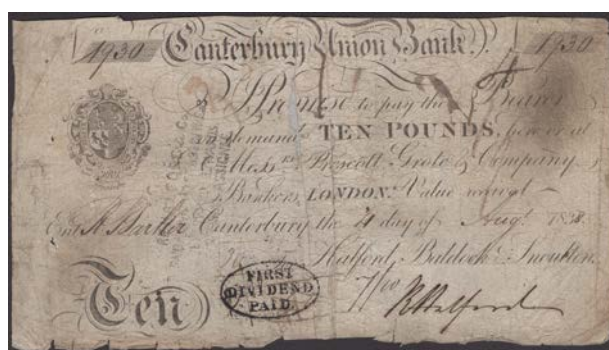 No 1930 Canterbury Union Bank. 1930
I Promise to pay the Bearer
on demand TEN POUNDS, here or at
Messrs Prescott Grote & Company
Bankers, LONDON. Value received
Entd Canterbury the day of Augt 18
Halford, Baldock & Snoulten.
Ten
FIRST
DIVIDEND
PAID.
R Halford